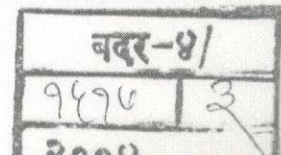 बदर-४/
१५१७ ३
२००४